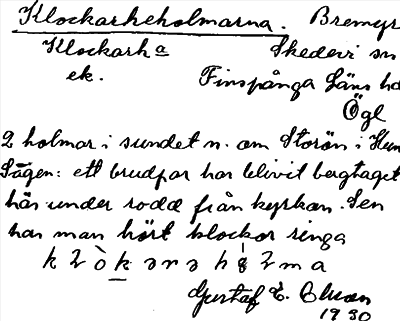 Klockarheholmarna. Bremyr
Klockarha Skedevi sn
ek. Finspånga Läns hd
Ögl
2 holmar i sundet n. om Storön i Hun
Sägen: ett brudpar har blivit bergtaget
här under rodd från kyrkan. Sen
har man hört klockor ringa
Gustaf E.
1930